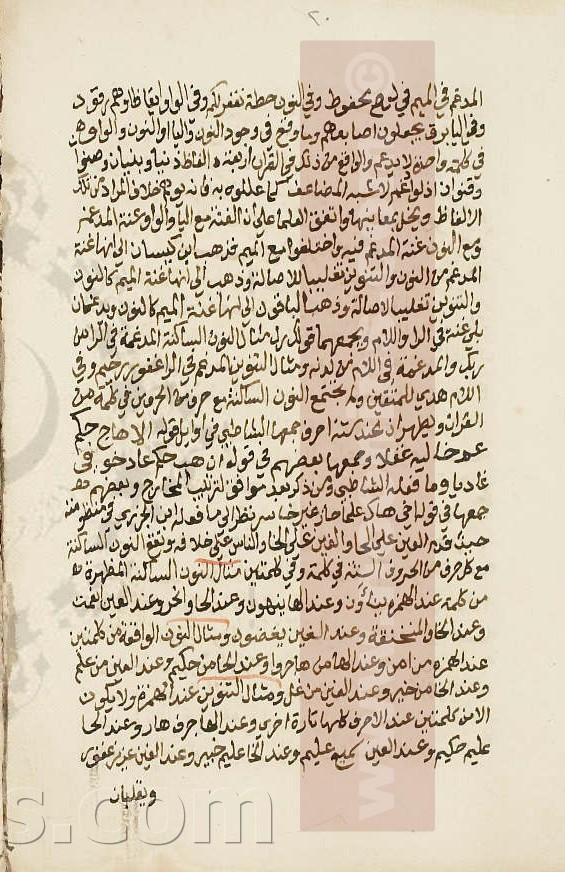 ٢٠
المدغم في الميم في لوح محفوظ وفي النون حطة نغفر لكم وفي الواو ايقاظا وهم رقود
وفي اليا برق يجعلون اصابعهم وما وقع في وجود النون واليا او النون والواو
في كلمة واحدة لا يدغم والواقع من ذلك في القران اربعة الفاظ دنيا وبنيان وصنوان
وقنوان اذ لو ادغم لاشبه المضاعف كما عللوه به فانه يوهم خلاف المراد من تلك
الالفاظ ويخل بمعانيها واتفق العلما على ان الغنة مع اليا والواو غنة المدغم
ومع النون غنة المدغم فيه واختلفوا مع الميم فذهب ابن كيسان الى انها غنة
المدغم من النون والتنوين تغليبا للاصالة وذهب الى انها غنة الميم كالنون
والتنوين تغليبا لاصالة وذهب الباقون الى انها غنة الميم كالنون ويدغمان
بلا غنة في الرا واللام ويجمعهما قولك رل مثال النون الساكنة المدغمة في الرا من
ربك والمدغمة في اللام من لدنه ومثال التنوين المدغم في الرا غفور رحيم وفي
اللام هدي للمتقين ولم تجتمع النون الساكنة مع حرف من الحرفين في كلمة من
القران ويظهران عند ستة احرف جمعها الشاطبي في اوايل قوله الا هاج حكم
عم خاليه غفلا وجمعها بعضهم في قوله ان هب حكم عاد خو في
غاديا وما فعله الشاطبي ومن ذكر بعد موافق لترتيب المخارج وبعضهم
جمعها في قوله اخي هاك علما حازه غير خاسر نظرا لما فعله ابن الجزري في منظومته
حيث قدم العين على الحا والغين على الخا والناس على خلافه وتقع النون الساكنة
مع كل حرف من الحروف الستة في كلمة وفي كلمتين مثال النون الساكنة المظهرة
من كلمة عند الهمزة ينئون وعند الها ينهون وعند الحا وانحر وعند العين انعمت
وعند الخا والمنخنقة وعند الغين ينغضون ومثال النون الواقعة من كلمتين
عند الهمزة من امن وعند الها من هاجر وعند الحا من حكيم وعند العين من علم
وعند الخا من خير وعند الغين من غل ومثال التنوين عند الهمزة ولا يكون
الا من كلمتين عند الاحرف كلها تارة اخري وعند الها جرف هار وعند الحا
عليم حكيم وعند العين سميع عليم وعند الخا عليم خبير وعند الغين عزيز غفور
ويقلبان
s.com
www.
©